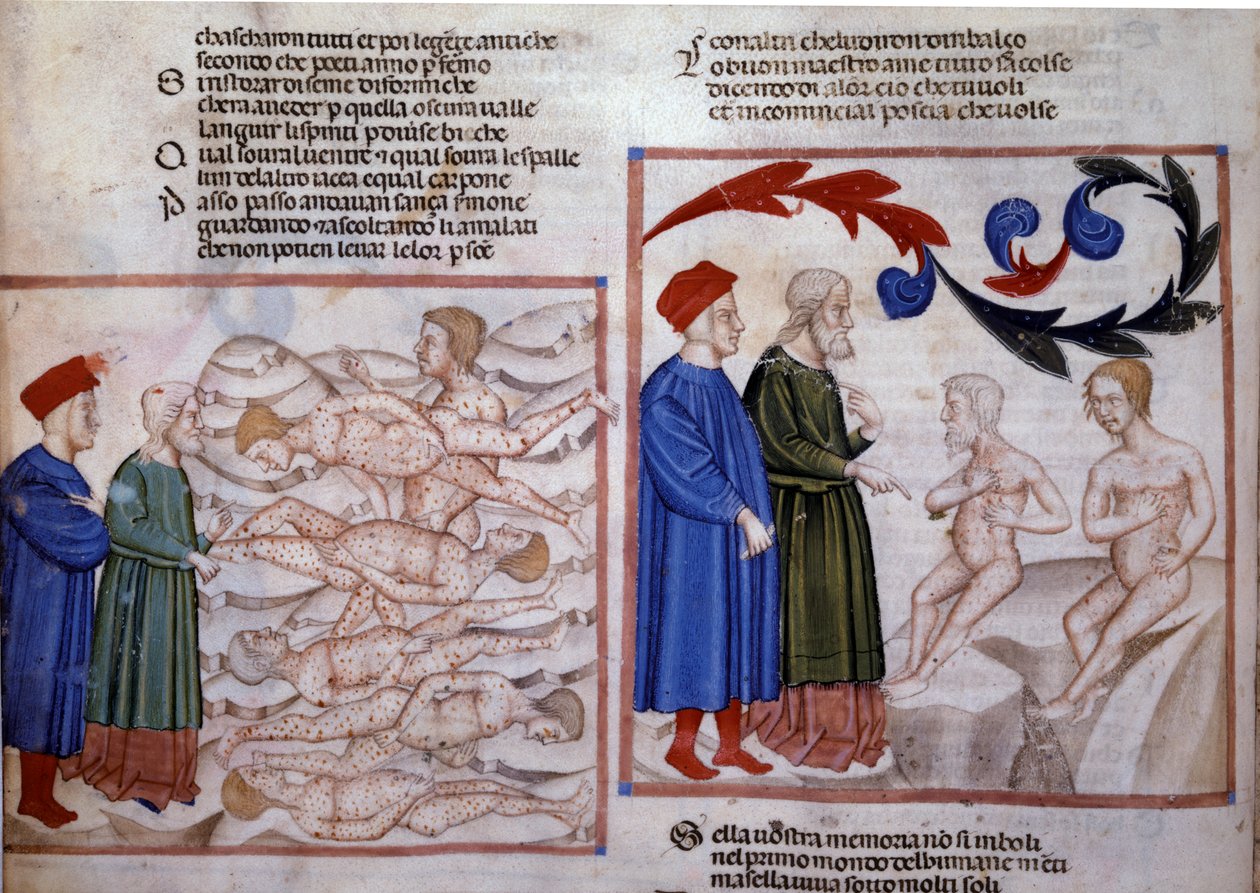 chascharon tutti et poi legẽte antiche
secondo che poeti anno p fermo
Si ristorar di seme di formi che
chera aueder p quella oscura ualle
languir li spiriti p diuerse bi che
Qual soura luentre ⁊ qual soura le spalle
lun del altro iacea e qual carpone
Passo passo andauan sança smone
guardando ⁊ ascoltando li amalati
che non potien leuar le lor p sõe
con altri che ludiron di rimbalço
Lo buon maestro ame tuto sacolse
dicendo di alor cio che tu uoli
et incominciai poscia che uolse
Sella uostra memoria nõ si imboli
nel primo mondo del humane mẽti
ma sella uiua sotto molti soli